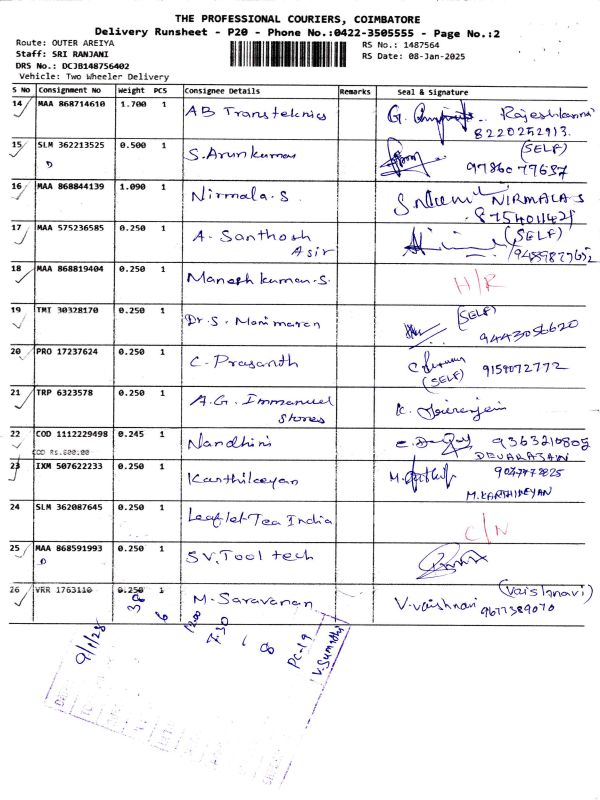 THE PROFESSIONAL COURIERS, COIMBATORE
Delivery Runsheet - P20 - Phone No.:0422-3505555 - Page No.:2
Route: OUTER AREIYA
Staff: SRI RANJANI
DRS No.: DCJB148756402
Vehicle: Two Wheeler Delivery
RS No.: 1487564
RS Date: 08-Jan-2025
S No Consignment No Weight PCS Consignee Details Remarks Seal & Signature
14 MAA 868714610 1.700 1 AB Transteknics G. Rajeshkannа
8220252913.
15 SLM 362213525 0.500 1 S. Arunkumar (SELF)
D 9786077697
16 MAA 868844139 1.090 1 Nirmala.S. NIRMALA.S
8754011421
17 MAA 575236585 0.250 1 A. Santhosh Asir (SELF)
18 MAA 868819404 0.250 1 Manesh kumar.S. H/R
19 TMT 30328170 0.250 1 Dr.S. Manimaran (SELF)
9443056620
20 PRO 17237624 0.250 1 C. Prasanth (SELF) 9159072772
21 TRP 6323578 0.250 1 A.G. Immanuel Stores K.
22 COD 1112229498 0.245 1 Nandhini 9363210805
COD Rs.600.00 DEVARAJAN
23 IXM 507622233 0.250 1 Karthikeyan M.
M.KARTHIKEYAN
24 SLM 362087645 0.250 1 Leaflet Tea India C/N
25 MAA 868591993 0.250 1 S.V. Tool tech
D
26 VRR 1763110 0.250 1 M. Saravanan V. Vaishnavi (Vaishnavi)
9677389070
9/1/25 38 6 12.00 7.30 1 08 PC-19 V.Sumathi